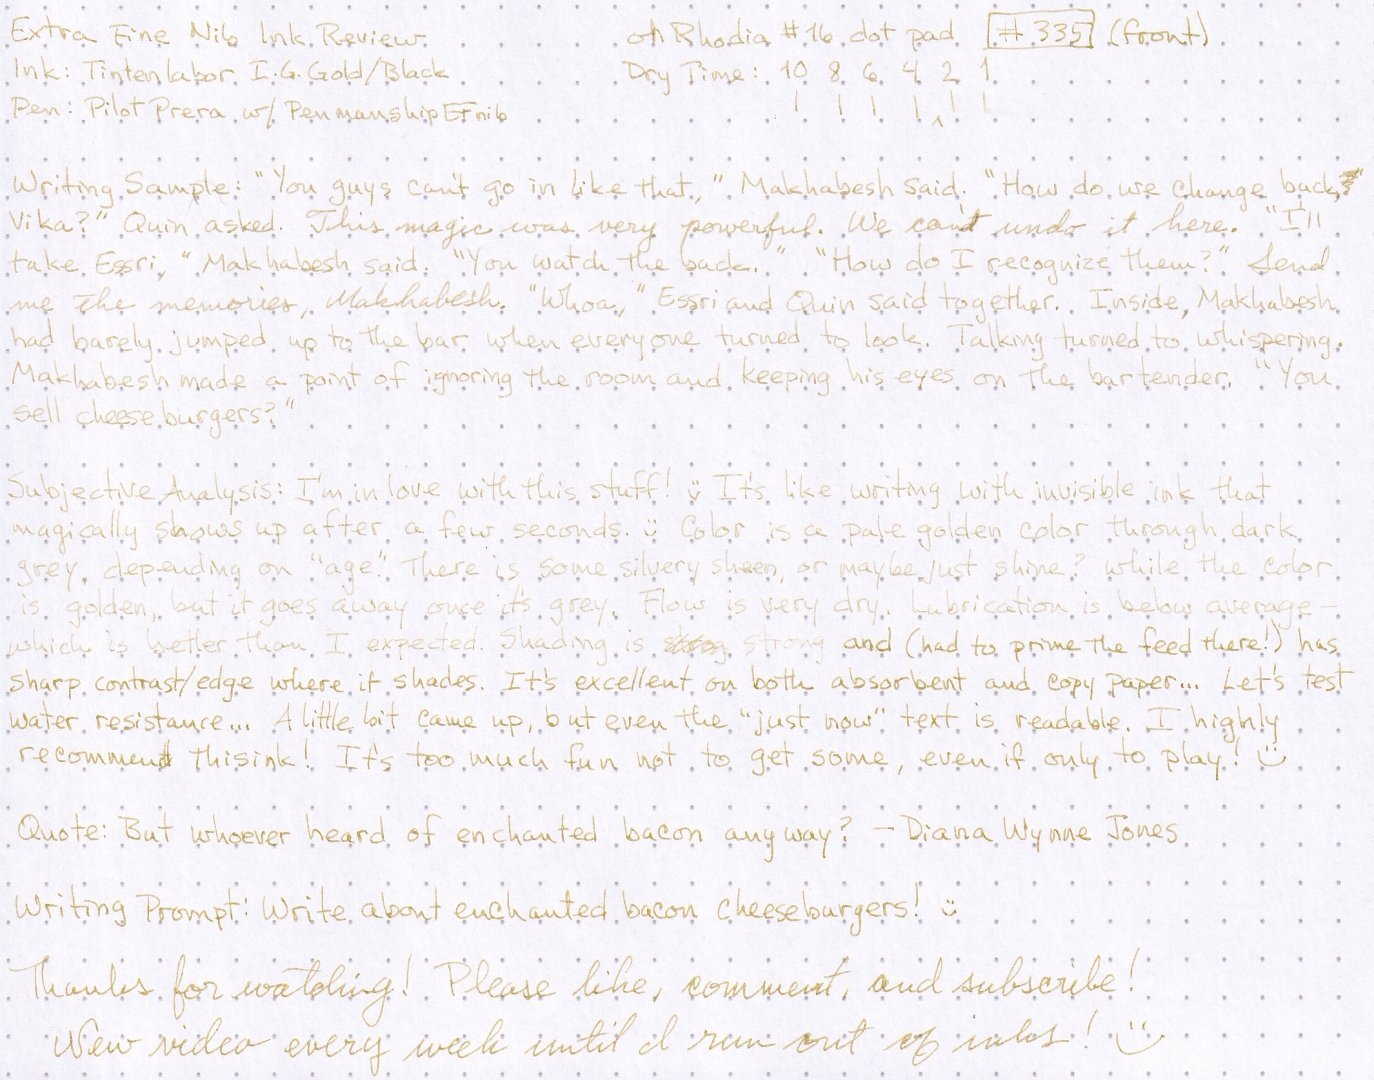 Extra Fine Nib Ink Review on Rhodia #16 dot pad #335 (front)
Ink: Tintenlabor I.G. Gold/Black Dry Time: 10 8 6 4 2 1
Pen: Pilot Prera w/ Penmanship EF nib
Writing Sample: "You guys can't go in like that," Makhabesh said. "How do we change back,
Vika?" Quin asked. This magic was very powerful. We can't undo it here." "I'll
take Essri," Makhabesh said. "You watch the back." "How do I recognize them?" Send
me the memories, Makhabesh. "Whoa," Essri and Quin said together. Inside, Makhabesh
had barely jumped up to the bar when everyone turned to look. Talking turned to whispering.
Makhabesh made a point of ignoring the room and keeping his eyes on the bartender. "You
sell cheeseburgers?"
Subjective Analysis: I'm in love with this stuff! :) It's like writing with invisible ink that
magically shows up after a few seconds. :) Color is a pale golden color through dark
grey, depending on "age". There is some silvery sheen, or maybe just shine? while the color
is golden, but it goes away once it's grey. Flow is very dry. Lubrication is below average–
which is better than I expected. Shading is strong and (had to prime the feed there!) has
sharp contrast/edge where it shades. It's excellent on both absorbent and copy paper... Let's test
water resistance... A little bit came up, but even the "just now" text is readable. I highly
recommend this ink! It's too much fun not to get some, even if only to play! :)
Quote: But whoever heard of enchanted bacon anyway? – Diana Wynne Jones
Writing Prompt: Write about enchanted bacon cheeseburgers! :)
Thanks for watching! Please like, comment, and subscribe!
New video every week until I run out of inks! :)